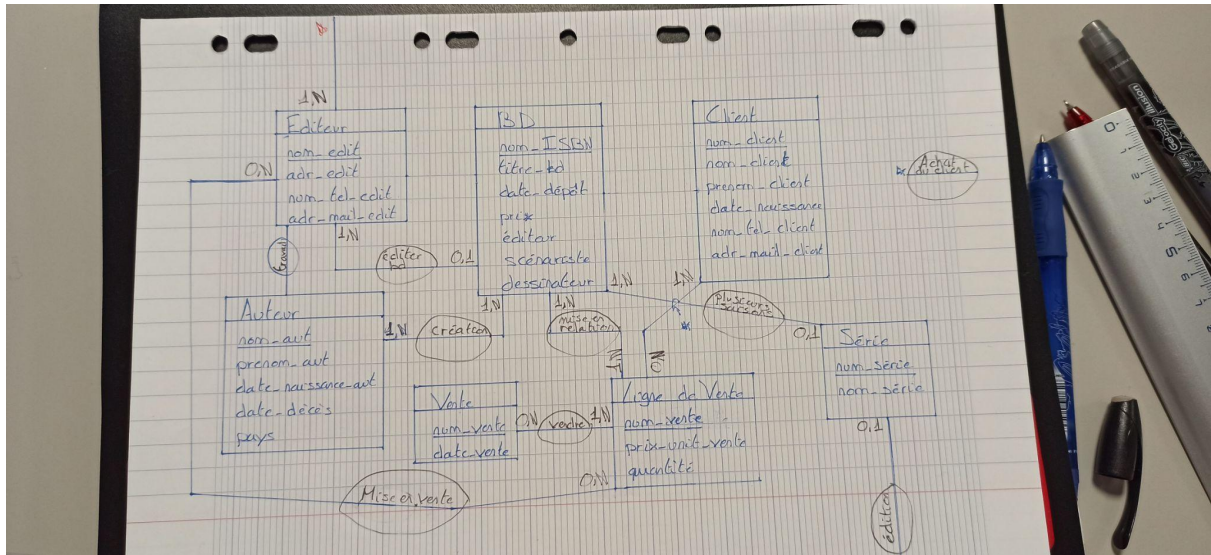 1,N
Editeur
nom_edit
adr_edit
num_tel_edit
adr_mail_edit
0,N
1,N
travail
éditer
bd
0,1
BD
nom_ISBN
titre_bd
date_dépôt
prix
éditeur
scénariste
dessinateur
1,N
1,N
1,N
Client
num_client
nom_client
prenom_client
date_naissance
num_tel_client
adr_mail_client
1,N
Achat
du client
Auteur
nom_aut
prenom_aut
date_naissance_aut
date_décès
pays
1,N
création
mise en
relation
plusieurs
0,1
Série
num_série
nom_série
0,1
édition
Vente
num_vente
date_vente
0,N
vendre
1,N
Ligne de Vente
num_vente
prix_unit_vente
quantité
0,N
Mise en vente